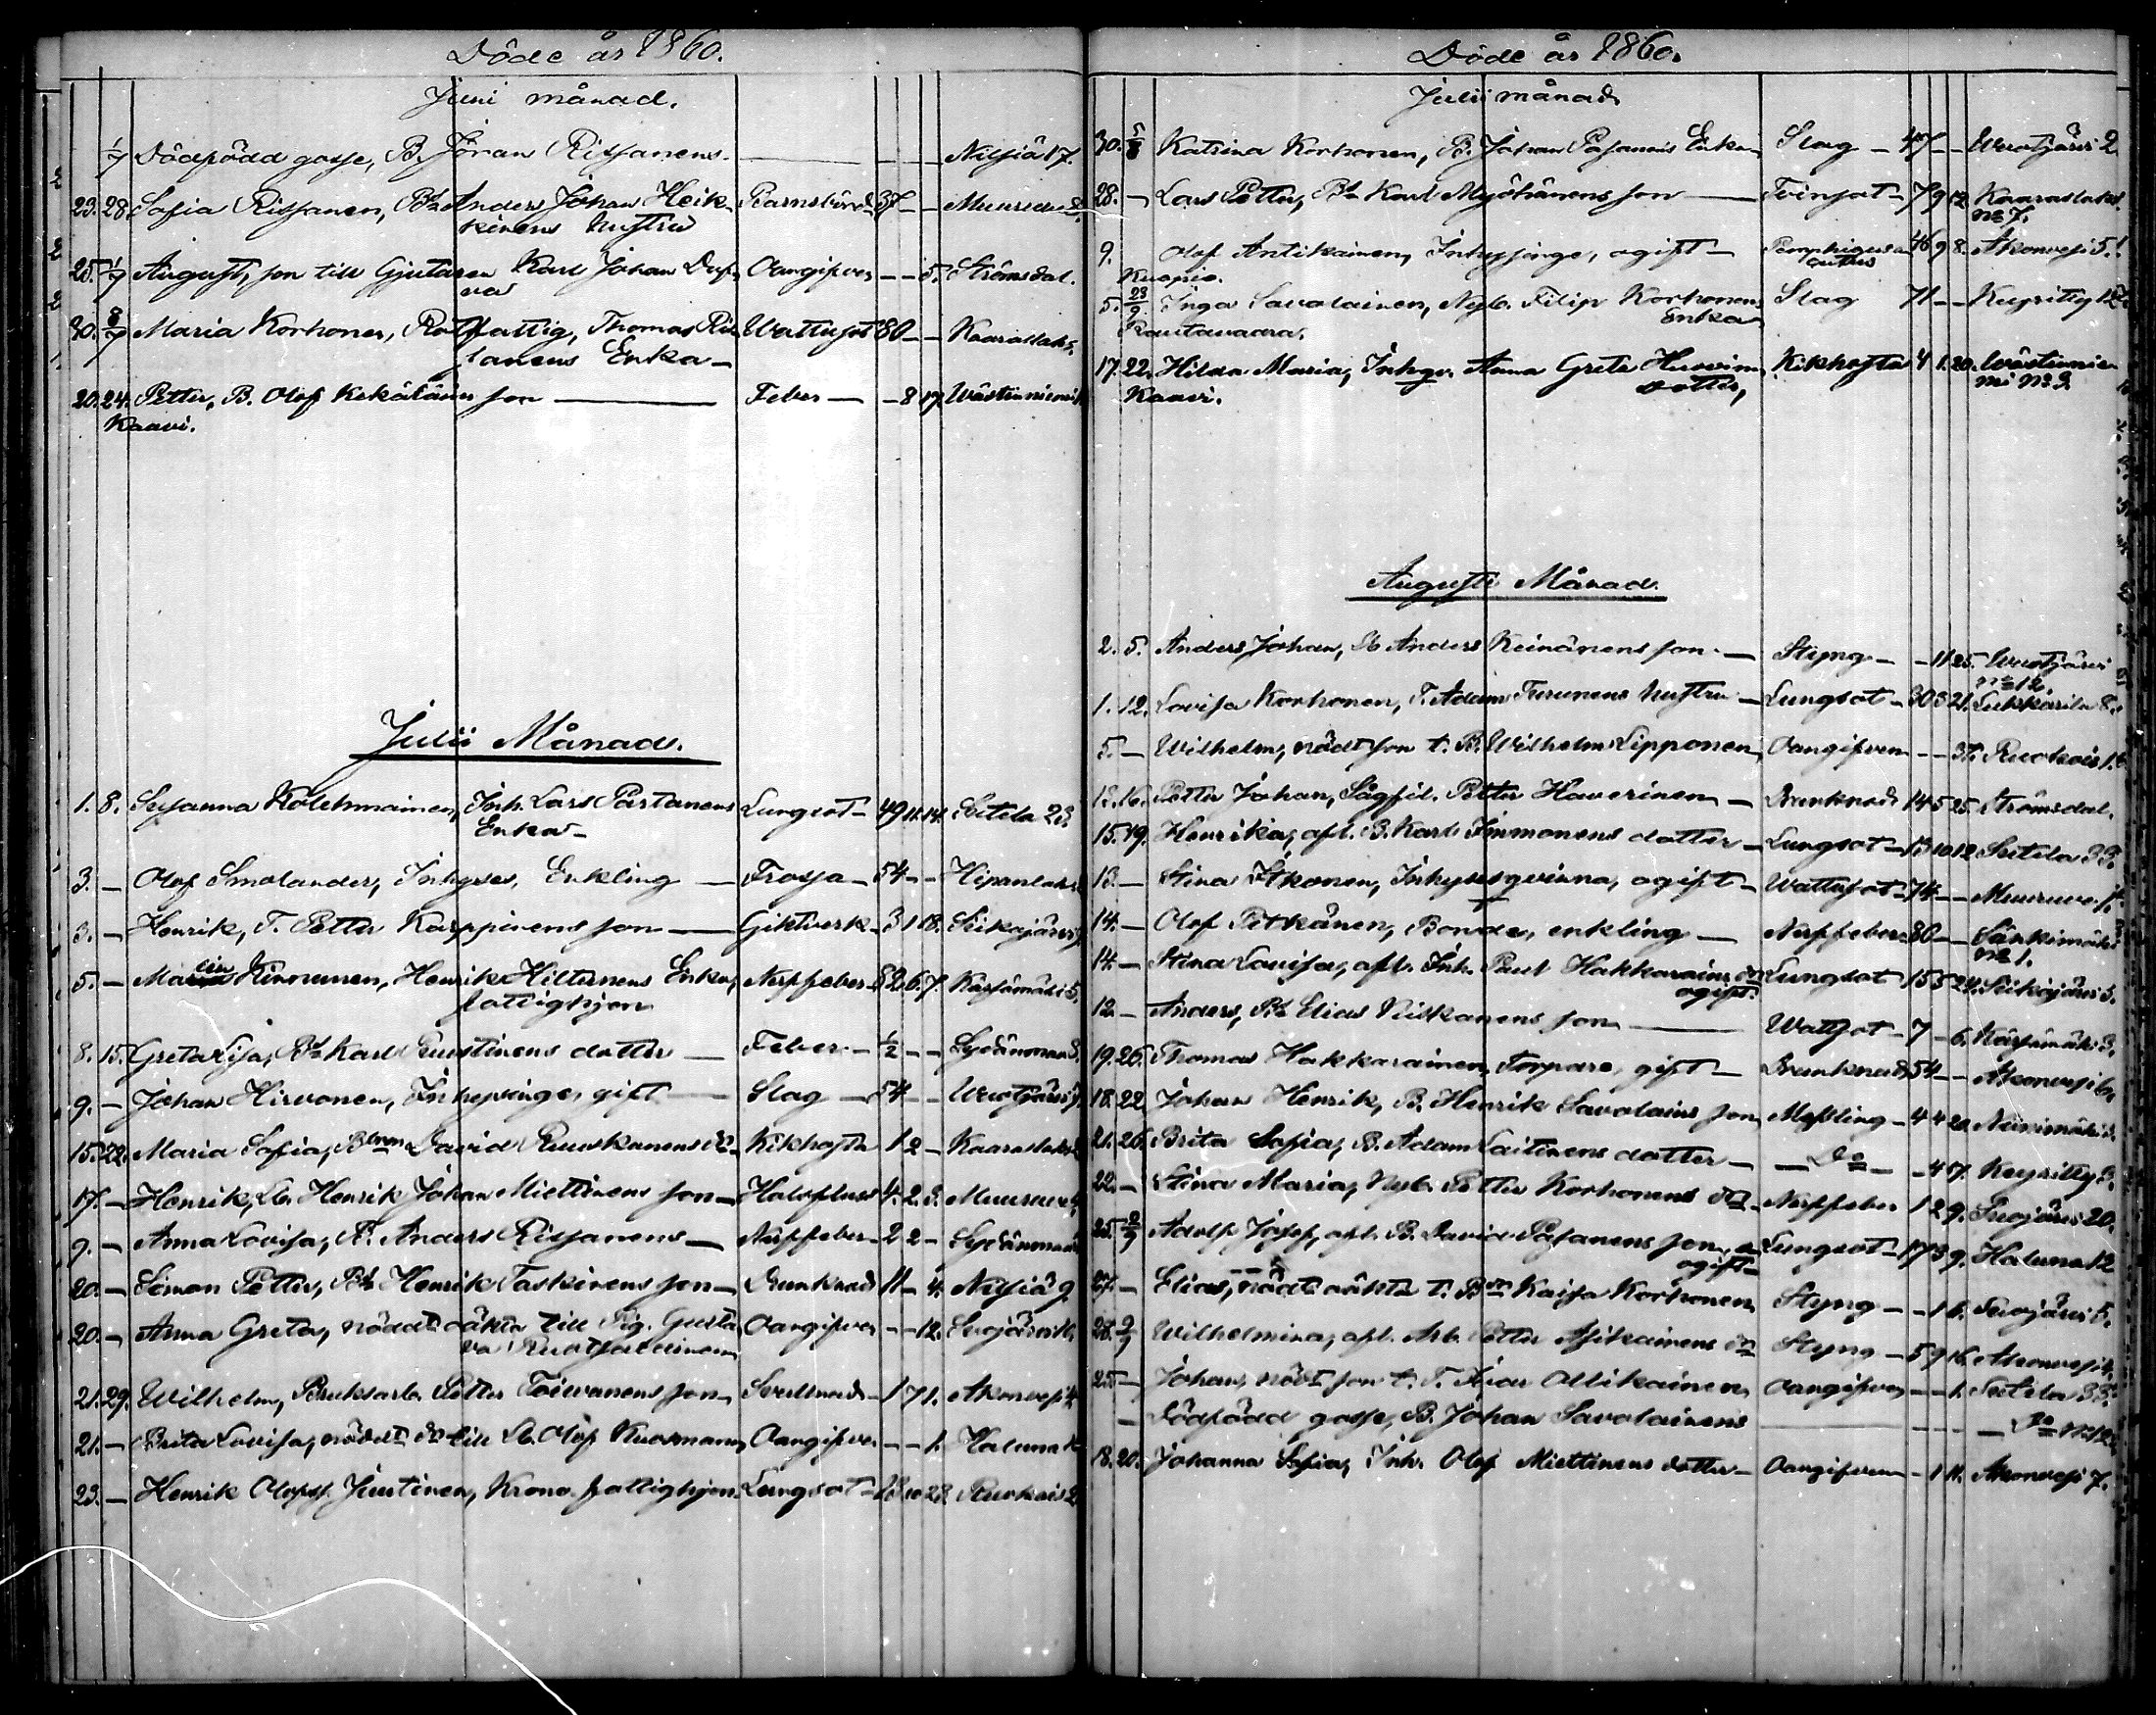 Döde år 1860.
Juni månad.
1/7 Dödfödd gosse, B. Jöran Rissanens — Nilsiä 17.
23. 28. Sofia Rissanen, Bds Anders Johan Heik- Barnsbörd 37 — — Muuruve
kinens hustru
25. 1/7 August, son till Gjutaren Karl Johan Oangifven — — 5. Strömsdal.
30. 8/7 Maria Korhonen, Rotfattig, Thomas Ris- Wattusot 80 — — Kaaraslaks.
sanens Enka —
20. 24. Petter, B. Olof Kekäläinens son — Feber — — 8 17. Wästinniemi
Kaavi.
Julii Månad.
1. 8. Susanna Kolehmainen, Inh. Lars Partanens Lungsot — 49 11. 14. Sutela 23.
Enka —
3. — Olof Smolander, Inhyses, Enkling — Frossa — 54 — —
3. — Henrik, T. Petter Karppinens son — Giktverk — 3 1 18. Siikajärvi
5. — Malin Kinnunen, Henrik Hiltunens Enka, Nerffeber — 82. 6. 7. Kärsämäki 5.
fattighjon
8. 15. Greta Lisa, Bds Karl Puustinens dotter — Feber — 1/2 — — Sydänmaa 3.
9. — Johan Hirvonen, Inhysinge, gift — Slag — 54 — — Wuotjärvi
15. 22. Maria Sofia, David Ruuskanens dr. Kikhosta 1 2 — Kaaraslaks
17. — Henrik, Lb. Henrik Johan Miettinens son — Halsfluss 4. 2. 3. Muuruve
9. — Anna Lovisa, B. Anders Rissanens — Nerffeber — 2 2 — Sydänmaa
20. — Simon Petter, Bds Henrik Taskinens son — Brunknad 11 — 4. Nilsiä 9
20. — Anna Greta, nödd. oäkta till Pig. Gusta- Oangifven — — 12. Suojärvi
va Ruotsalainen
21. 29. Wilhelm, Bruksarb. Petter Toivanens son — Svullnad — 1 7 1. Akonvesi
21. — Brita Lovisa, nödd. dr till Lb. Olof Kuosmanen Oangifven — — 1. Haluna
23. — Henrik Olofss. Juutinen, Krono fattighjon Lungsot — 10 28. Ruokois 2
Döde år 1860.
Julii månad.
30. 5/8 Katrina Korhonen, B. Johan Pasanens Enka Slag — 47 — — Wuotjärvi 2.
28. — Lars Petter, Bds Karl Myöhänens son — Tvinsot — 7 9 12. Kaaraslaks
No 7.
9. Olof Antikainen, Inhysinge, ogift — Pemphigus 46 9 8. Akonvesi 5.
Kuopio. acutus
5. 23/9 Inga Savolainen, Nyb. Filip Korhonens Slag 71 — — Keyritty
Rautavaara. Enka
17. 22. Hilda Maria, Inhqv. Anna Greta Kikhosta 4 1. 20. Wästinnie-
Kaavi. dotter, mi No 3.
Augusti Månad.
2. 5. Anders Johan, Lb Anders Keinänens son — Styng — — 11 25. Wuotjärvi
No 12.
1. 12. Lovisa Korhonen, T. Adam Turunens hustru — Lungsot — 30 3 21. Lukkarila 8.
5. — Wilhelm, nödd. son t. B. Wilhelm Lipponen Oangifven — — 3 Ruokois 1.
12. 16. Petter Johan, Sågfil. Petter Haverinen — Brunknad 14 5 25. Strömsdal.
15. 19. Henrika, afl. B. Karl Immonens dotter — Lungsot — 13 10 12 Sutela 33.
13. — Stina Itkonen, Inhysesqvinna, ogift — Wattusot — 74 — — Muuruve
14. — Olof Pitkänen, Bonde, enkling — Nerffeber 80 — — Sänkimäki
No 1.
14. — Stina Lovisa, afl. Inh. Paul Hakkarainens dr Lungsot 15 5 24. Siikajärvi 3.
ogift.
12. — Anders, Bds Elias Niskanens son — Wattsot — 7 — 6. Kärsämäki 3.
19. 26. Thomas Hakkarainen, Torpare, gift — Brunknad 54 — — Akonvesi 6.
18. 22. Johan Henrik, B. Henrik Savolainens son Messling — 4 4 20. Niinimäki
21. 26. Brita Sofia, B. Adam Laitinens dotter — — Do — — 4 17. Keyritty 3.
22. — Stina Maria, Nyb. Petter Korhonens dr Nerffeber 1 2 9. Suojärvi 20.
25. 2/9 Adolf Josef, afl. B. David Pasanens son, Lungsot — 17 3 9. Haluna 12
ogift —
27. — Elias, nödd. oäkta t. Kaisa Korhonen Styng — — 1 6. Suojärvi 5.
28. 2/9 Wilhelmina, afl. Arb. Petter Asikainens dr Styng — 5 9 16. Akonvesi
25 — Johan, nödd. son t. T. Ollikainen Oangifven — — 1. Sutela 33.
— Dödfödd gosse, B. Johan Savolainens — Do No 12
18. 20. Johanna Sofia, Inh. Olof Miettinens dotter — Oangifven — 1 11. Akonvesi 7.